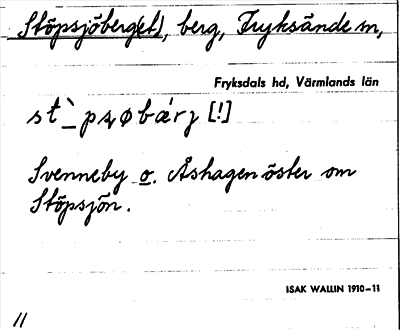 Stöpsjöberg(et), berg, Fryksände sn,
Fryksdals hd, Värmlands län
Svenneby o. Åshagen öster om
Stöpsjön.
ISAK WALLIN 1910–11
11